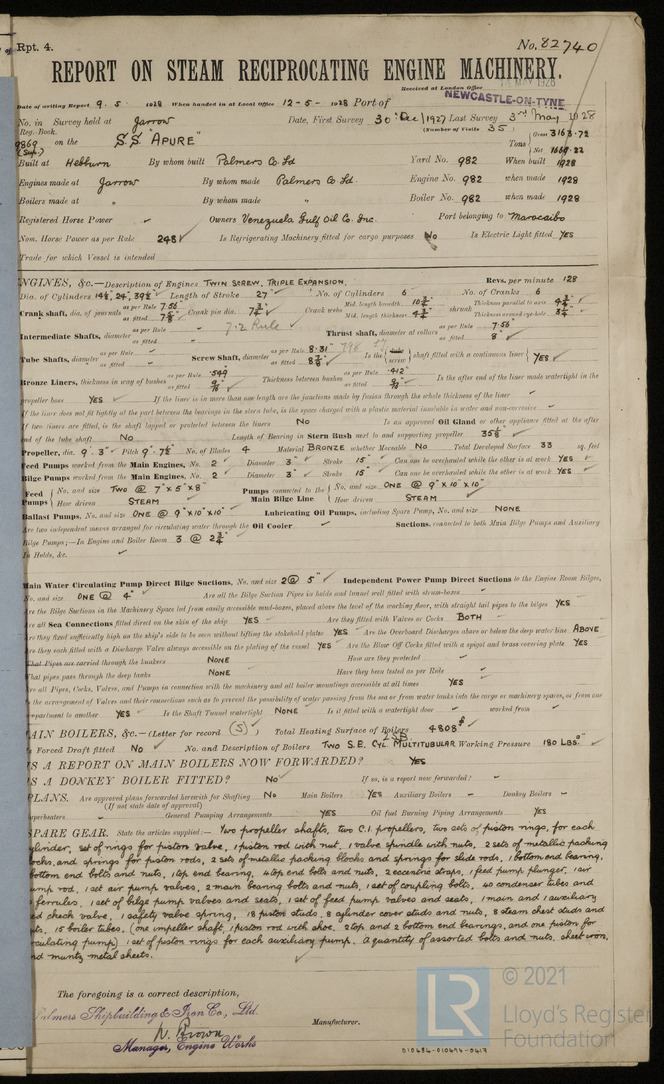 Rpt. 4. No. 82740
REPORT ON STEAM RECIPROCATING ENGINE MACHINERY.
Received at London Office MAY 1928
Date of writing Report 9. 5. 1928 When handed in at Local Office 12-5-1928 Port of NEWCASTLE-ON-TYNE
No. in Survey held at Jarrow Date, First Survey 30th Dec/1927 Last Survey 3rd May 1928
Reg. Book. (Number of Visits 35)
9869 on the S.S. "APURE" Tons Gross 3163.72
(Sup.) Net 1669.22
Built at Hebburn By whom built Palmers Co Ld Yard No. 982 When built 1928
Engines made at Jarrow By whom made Palmers Co Ld. Engine No. 982 when made 1928
Boilers made at " By whom made " Boiler No. 982 when made 1928
Registered Horse Power Owners Venezuela Gulf Oil Co. Inc. Port belonging to Maracaibo
Nom. Horse Power as per Rule 248 Is Refrigerating Machinery fitted for cargo purposes No Is Electric Light fitted YES
Trade for which Vessel is intended
ENGINES, &c.—Description of Engines TWIN SCREW, TRIPLE EXPANSION, Revs. per minute 128
Dia. of Cylinders 14½, 24, 39½ Length of Stroke 27" No. of Cylinders 6 No. of Cranks 6
Crank shaft, dia. of journals as per Rule 7.56 as fitted 7⅝ Crank pin dia. 7¾ Crank webs Mid. length breadth 10¾ Mid. length thickness 4¾ shrunk Thickness parallel to axis 4¾ Thickness around eye-hole 3¼
Intermediate Shafts, diameter as per Rule as fitted 7.2 Rule Thrust shaft, diameter at collars as per Rule 7.56 as fitted 8"
Tube Shafts, diameter as per Rule as fitted Screw Shaft, diameter as per Rule 8.31 as fitted 8⅝ Is the screw shaft fitted with a continuous liner YES
Bronze Liners, thickness in way of bushes as per Rule .549 as fitted Thickness between bushes as per Rule .412 as fitted Is the after end of the liner made watertight in the
propeller boss YES If the liner is in more than one length are the junctions made by fusion through the whole thickness of the liner
If the liner does not fit tightly at the part between the bearings in the stern tube, is the space charged with a plastic material insoluble in water and non-corrosive
If two liners are fitted, is the shaft lapped or protected between the liners No Is an approved Oil Gland or other appliance fitted at the after
end of the tube shaft No Length of Bearing in Stern Bush next to and supporting propeller 35⅝
Propeller, dia. 9'. 3" Pitch 9'. 7½ No. of Blades 4 Material BRONZE whether Moveable No Total Developed Surface 33 sq. feet
Feed Pumps worked from the Main Engines, No. 2 Diameter 3" Stroke 15" Can one be overhauled while the other is at work YES
Bilge Pumps worked from the Main Engines, No. 2 Diameter 3" Stroke 15" Can one be overhauled while the other is at work YES
Feed Pumps No. and size TWO @ 7"x5"x8" Pumps connected to the Main Bilge Line No. and size ONE @ 9"x10"x10"
How driven STEAM How driven STEAM
Ballast Pumps, No. and size ONE @ 9"x10"x10" Lubricating Oil Pumps, including Spare Pump, No. and size NONE
Are two independent means arranged for circulating water through the Oil Cooler Suctions, connected to both Main Bilge Pumps and Auxiliary
Bilge Pumps;—In Engine and Boiler Room 3 @ 2¾
In Holds, &c.
Main Water Circulating Pump Direct Bilge Suctions, No. and size 2 @ 5" Independent Power Pump Direct Suctions to the Engine Room Bilges,
No. and size ONE @ 4" Are all the Bilge Suction Pipes in holds and tunnel well fitted with strum-boxes
Are the Bilge Suctions in the Machinery Space led from easily accessible mud-boxes, placed above the level of the working floor, with straight tail pipes to the bilges YES
Are all Sea Connections fitted direct on the skin of the ship YES Are they fitted with Valves or Cocks BOTH
Are they fixed sufficiently high on the ship's side to be seen without lifting the stokehold plates YES Are the Overboard Discharges above or below the deep water line ABOVE
Are they each fitted with a Discharge Valve always accessible on the plating of the vessel YES Are the Blow Off Cocks fitted with a spigot and brass covering plate YES
What Pipes are carried through the bunkers NONE How are they protected
What pipes pass through the deep tanks NONE Have they been tested as per Rule
Are all Pipes, Cocks, Valves, and Pumps in connection with the machinery and all boiler mountings accessible at all times YES
Is the arrangement of Valves and their connections such as to prevent the possibility of water passing from the sea or from water tanks into the cargo or machinery spaces, or from one
compartment to another YES Is the Shaft Tunnel watertight NONE Is it fitted with a watertight door worked from
MAIN BOILERS, &c.—(Letter for record (S)) Total Heating Surface of Boilers 4808
Is Forced Draft fitted No No. and Description of Boilers TWO S.E. CYL. MULTITUBULAR 2SB Working Pressure 180 LBS.
IS A REPORT ON MAIN BOILERS NOW FORWARDED? YES
IS A DONKEY BOILER FITTED? No If so, is a report now forwarded?
PLANS. Are approved plans forwarded herewith for Shafting No Main Boilers YES Auxiliary Boilers - Donkey Boilers -
(If not state date of approval)
Superheaters - General Pumping Arrangements YES Oil fuel Burning Piping Arrangements YES
SPARE GEAR. State the articles supplied:— Two propeller shafts, two C.I. propellers, two sets of piston rings, for each
cylinder, set of rings for piston valve, 1 piston rod with nut, 1 valve spindle with nuts, 2 sets of metallic packing
blocks, and springs for piston rods, 2 sets of metallic packing blocks and springs for slide rods, 1 bottom end bearing,
bottom end bolts and nuts, 1 top end bearing, 4 top end bolts and nuts, 2 eccentric straps, 1 feed pump plunger, 1 air
pump rod, 1 set air pump valves, 2 main bearing bolts and nuts, 1 set of coupling bolts, 40 condenser tubes and
ferrules, 1 set of bilge pump valves and seats, 1 set of feed pump valves and seats, 1 main and 1 auxiliary
feed check valve, 1 safety valve spring, 18 piston studs, 8 cylinder cover studs and nuts, 8 steam chest studs and
nuts, 15 boiler tubes, (one impeller shaft, 1 piston rod with shoe, 2 top and 2 bottom end bearings, and one piston for
circulating pump) 1 set of piston rings for each auxiliary pump. A quantity of assorted bolts and nuts, sheet iron,
and muntz metal sheets.
The foregoing is a correct description,
Palmers Shipbuilding & Iron Co., Ltd.
W. Brown Manufacturer.
Manager, Engine Works
010686-010696-0617
LR © 2021
Lloyd's Register
Foundation